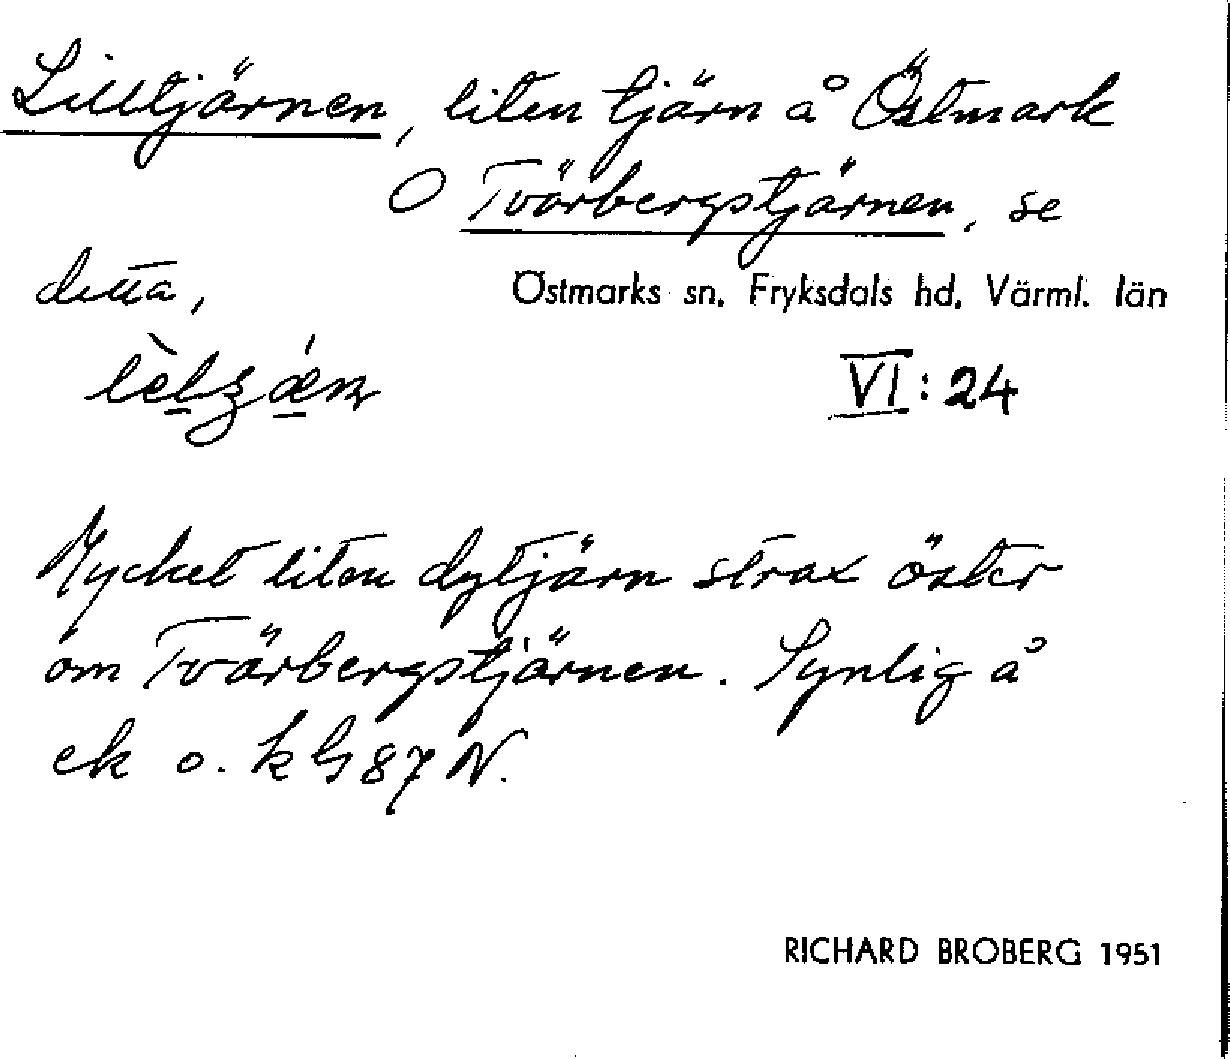 Lilltjärnen, liten tjärn å Östmark
O Tvärbergstjärnen, se
detta,
Östmarks sn. Fryksdals hd. Värml. län
VI: 24
Mycket liten dytjärn strax öster
om Tvärbergstjärnen. Synlig å
ek o. k G 87 N.
RICHARD BROBERG 1951